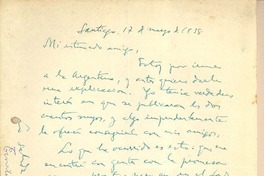 Santiago, 17 de mayo de 1938
Mi estimado amigo,
Estoy por irme
a la Argentina, y antes quiero darle
una explicación. Yo tenía verdadero
interés en que se publicaran los dos
cuentos suyos, y algo imprudentemente
le ofrecí conseguirlo con mis amigos.
Lo que ha ocurrido es esto: que me
encontré con gente con la promesa